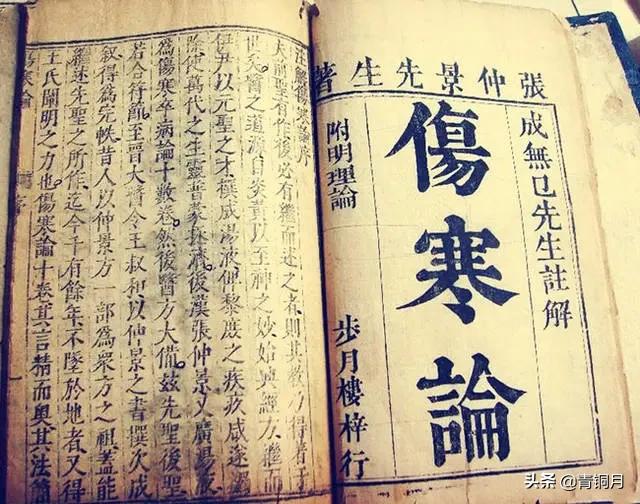 張仲景先生著
成無已先生註解
傷寒論
附明理論
步月樓梓行
註解傷寒論序
夫前聖有作後必有繼而述之者則其教乃得著于
世矣醫之道源自炎黃以至神之妙始興經方繼而
伊尹以元聖之才撰成湯液俾黎庶之疾疢咸遂蠲
除使萬代之生靈普蒙拯濟後漢張仲景又廣湯液
為傷寒卒病論十數卷然後醫方大備茲先聖後聖
若合符節至晉太醫令王叔和以仲景之書撰次成
叙得為完帙昔人以仲景方一部為眾方之祖蓋能
繼述先聖之所作迄今千有餘年不墜於地者又得
王氏闡明之力也傷寒論十卷其言精而奧其法簡
傷寒論
头条 @青铜月